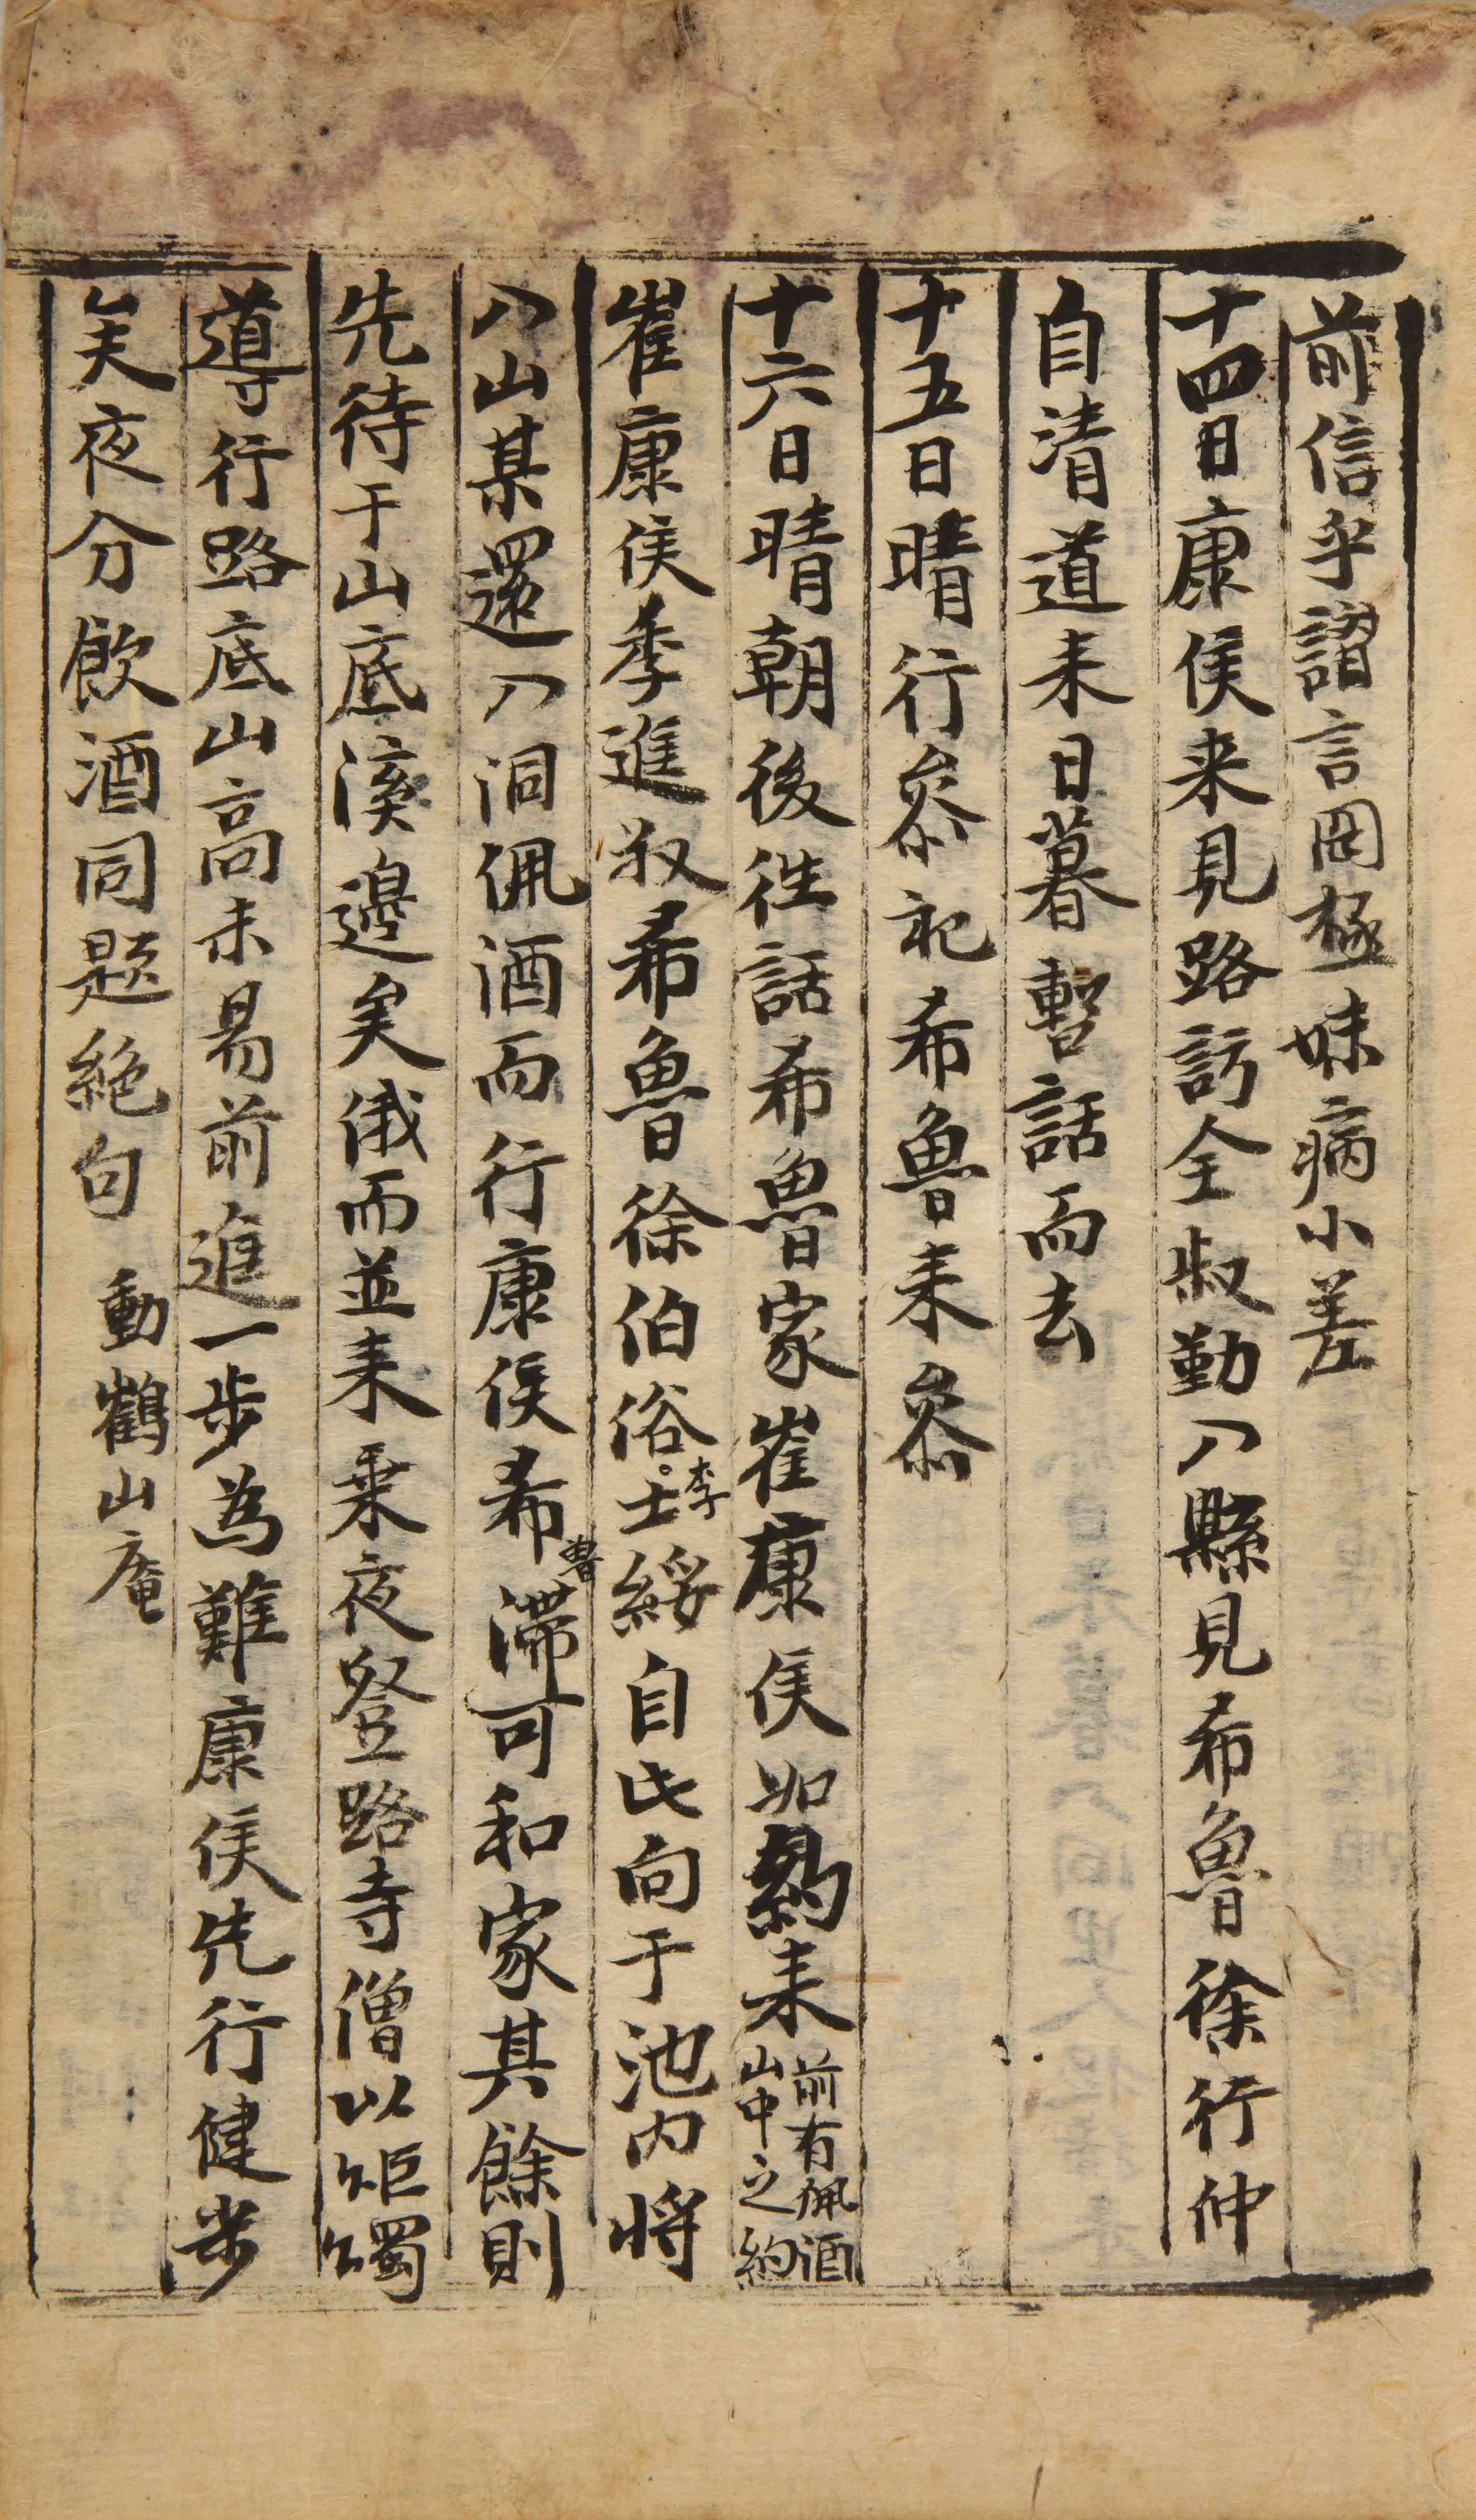 前信乎謟言罔極妹病小差
十四日康侯来見路訪全叔勤入縣見希魯徐行仲
自清道来日暮暫話而去
十五日晴行叅祀希魯来叅
十六日晴朝後徃話希魯家崔康侯如約来前有佩酒山中之約
崔康侯季進叔希魯徐伯俗李士綏自此向于池內将
入山某還入洞佩酒而行康侯希魯滯可和家其餘則
先待于山底溪邉矣俄而並来乗夜登路寺僧以炬燭
導行路底山高未易前進一步為難康侯先行健步
矣夜分飲酒同題絶句 動鶴山庵